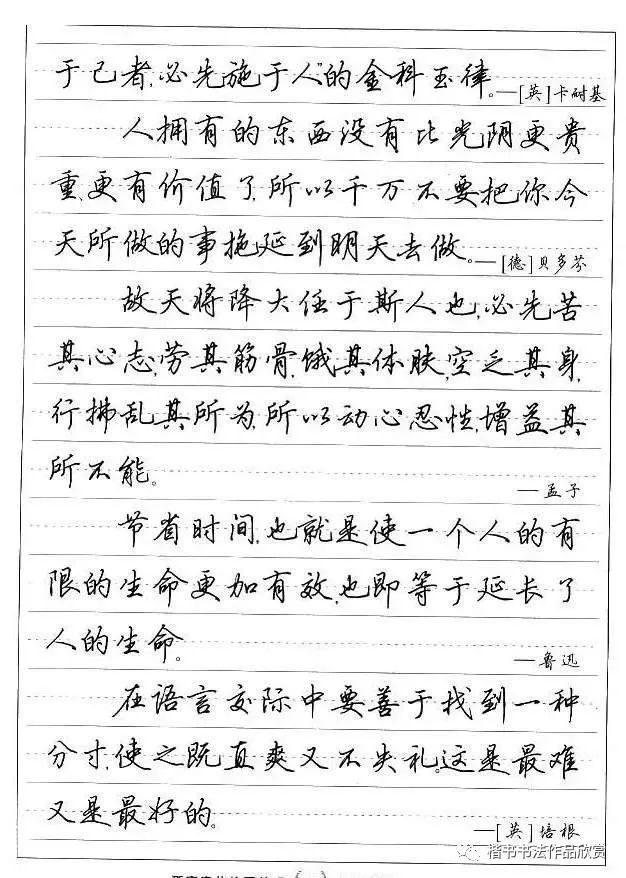 于己者,必先施于人”的金科玉律。—[英]卡耐基
人拥有的东西没有比光阴更贵
重,更有价值了,所以千万不要把你今
天所做的事拖延到明天去做。—[德]贝多芬
故天将降大任于斯人也,必先苦
其心志,劳其筋骨,饿其体肤,空乏其身,
行拂乱其所为,所以动心忍性,增益其
所不能。
—孟子
节省时间,也就是使一个人的有
限的生命更加有效,也即等于延长了
人的生命。
—鲁迅
在语言交际中要善于找到一种
分寸,使之既直爽又不失礼。这是最难
又是最好的。
—[英]培根
楷书书法作品欣赏